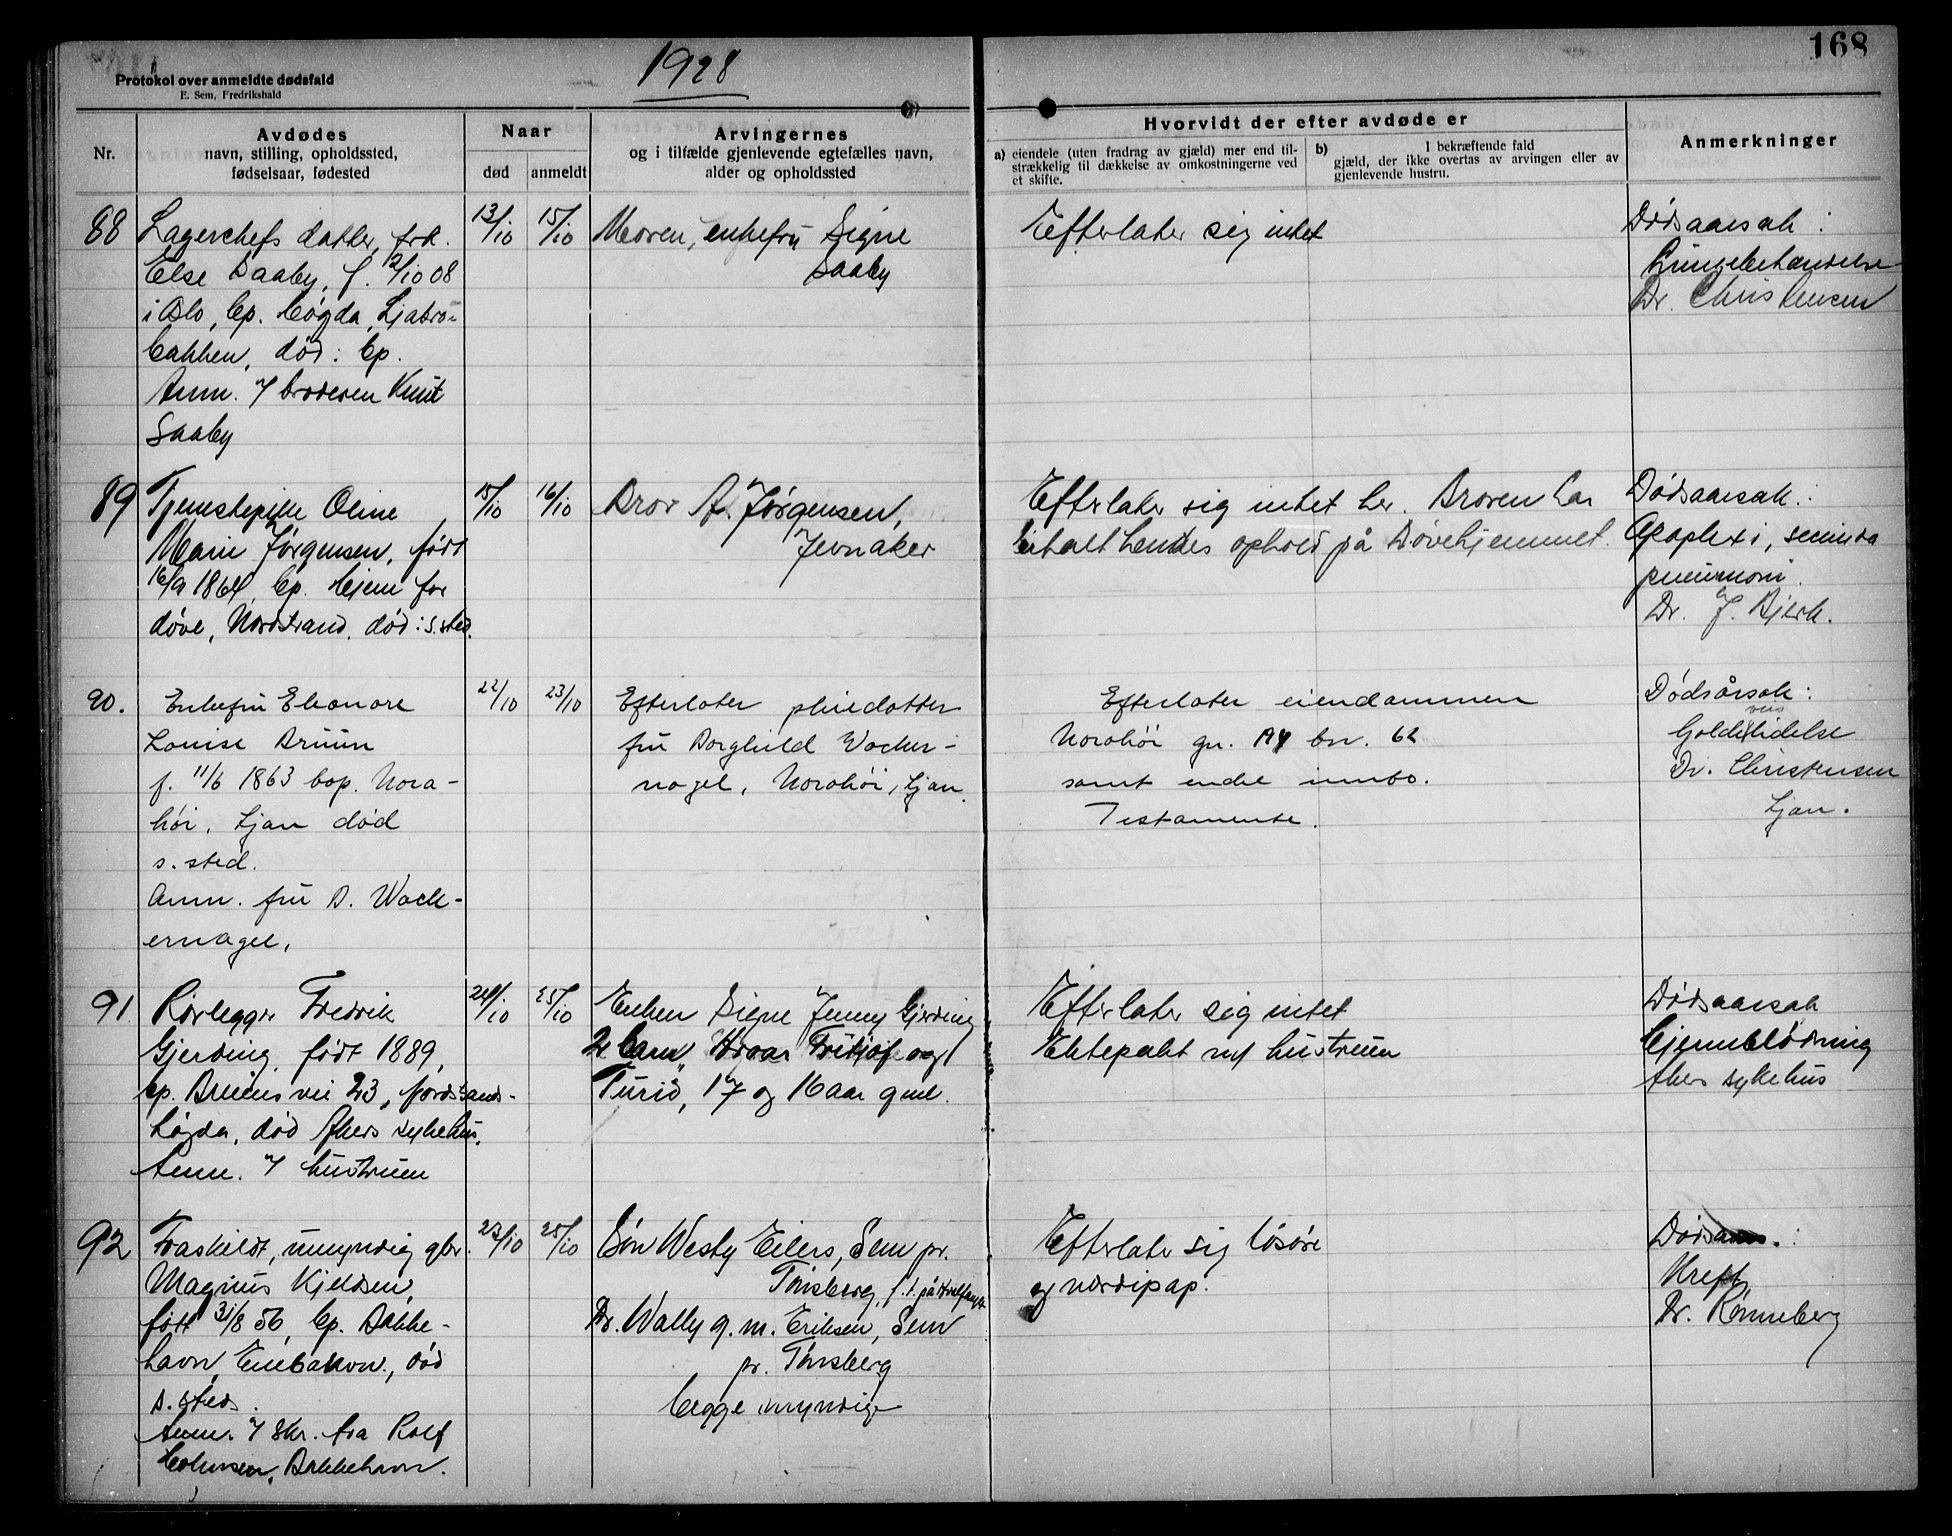 168
1928
Protokol over anmeldte dødsfald
E. Sem, Fredrikshald
Nr.
Avdødes
navn, stilling, opholdssted,
fødselsaar, fødested
Naar
død
anmeldt
Arvingernes
og i tilfælde gjenlevende egtefælles navn,
alder og opholdssted
Hvorvidt der efter avdøde er
a) eiendele (uten fradrag av gjæld) mer end til-
strækkelig til dækkelse av omkostningerne ved
et skifte.
b) I bekræftende fald
gjæld, der ikke overtas av arvingen eller av
gjenlevende hustru.
Anmerkninger
88
Lagerchefs datter, frk.
Else Saaby, f. 12/10 08
i Oslo, bp. Høgda, Ljabro-
bakken, død: bp.
Anm. v/ broderen Knut
Saaby
13/10
15/10
Moren, enkefru Signe
Saaby
Efterlater sig intet
Dødsaarsak:
Lungebetændelse
Dr. Christensen
89
Tjenestepike Oline
Marie Jørgensen, født
16/9 1864, bp. hjem for
døve, Nordstrand, død: s. sted.
15/10
16/10
Bror A. Jørgensen,
Jevnaker
Efterlater sig intet her. Broren har
betalt hendes ophold på Døvehjemmet.
Dødsaarsak:
Apoplexi, secunda
pneumoni.
Dr. J. Bjerk.
90.
Enkefru Eleonore
Louise Bruun
f. 11/6 1863 bop. Nora-
høi, Ljan død
s. sted.
Anm. fru B. Wack-
ernagel.
22/10
23/10
Efterlater pleiedatter
fru Borghild Wacker-
nagel, Norahøi, Ljan.
Efterlater eiendommen
Norahøi gn. bn. 62
samt endel innbo.
Testamente.
Dødsårsak:
veis
Galdelidelse
Dr. Christensen
Ljan.
91
Rørlegger Fredrik
Gjerding, født 1889,
bp. Bruens vei 23, Nordstrands-
høgda, død Akers sykehus.
Anm. v/ hustruen
24/10
25/10
Enken Signe Jenny Gjerding
2 barn, Hroar Fritjof og
Turid, 17 og 16 aar gml.
Efterlater sig intet
Ektepakt m/ hustruen
Dødsaarsak
Hjerneblødning
Akers sykehus
92
Fraskildt, umyndig gbr.
Magnus Kjeldsen,
født 31/8 56, bp. Bakke-
havn, Enebakvn., død
s. sted.
Anm. v/ skr. fra Rolf
Bakkehavn.
23/10
25/10
Søn Westy Eilers, Sem pr.
Tønsberg, f.t. på Hvalfangst
Dr. Wally g. m. Eriksen, Sem
pr. Tønsberg
begge myndige
Efterlater sig løsøre
og verdipap.
Kreft
Dr. Rønneberg